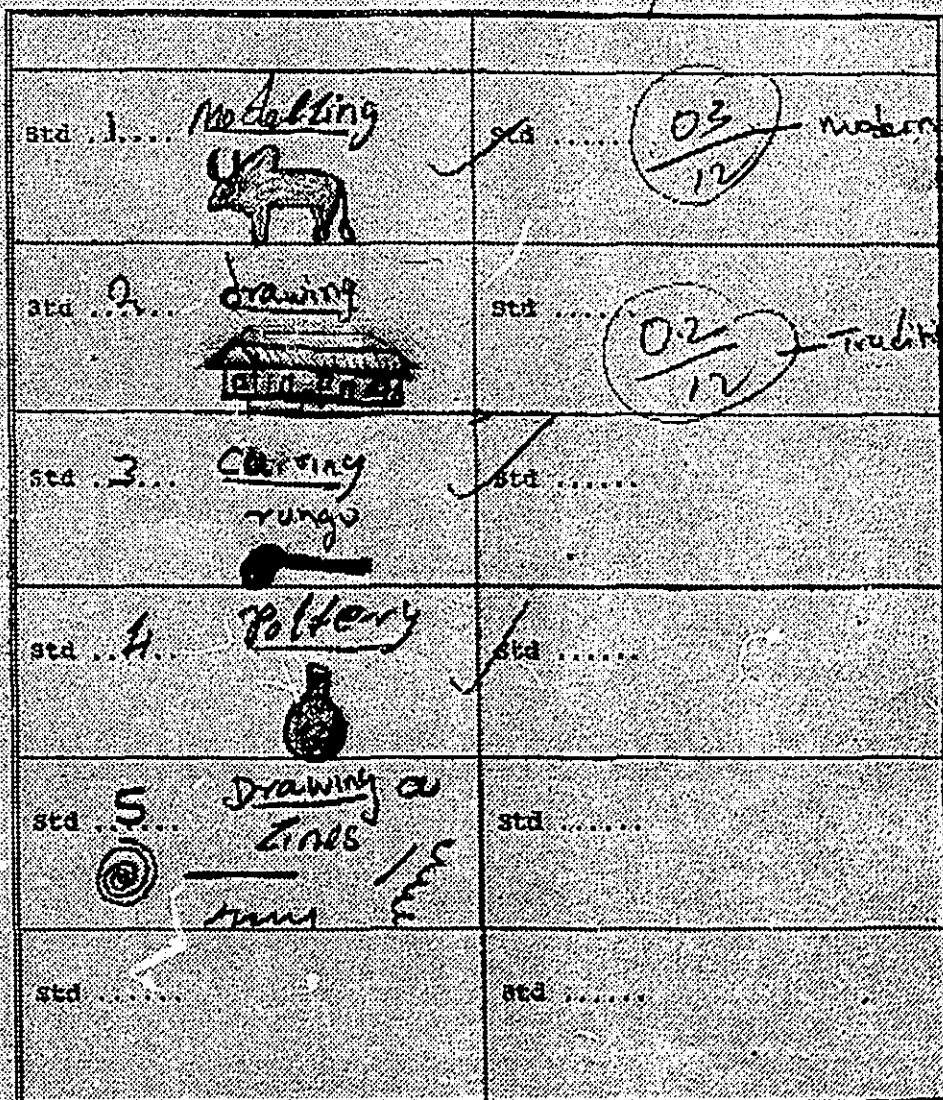 std .1.... Modelling
std ...... 03/12 modern
std ..2.... drawing
std ...... 02/12
std ..3... Carving
rungo
std ......
std ..4.. pottery
std ......
std ..5.... Drawing
Lines
std ......
std ......
std ......